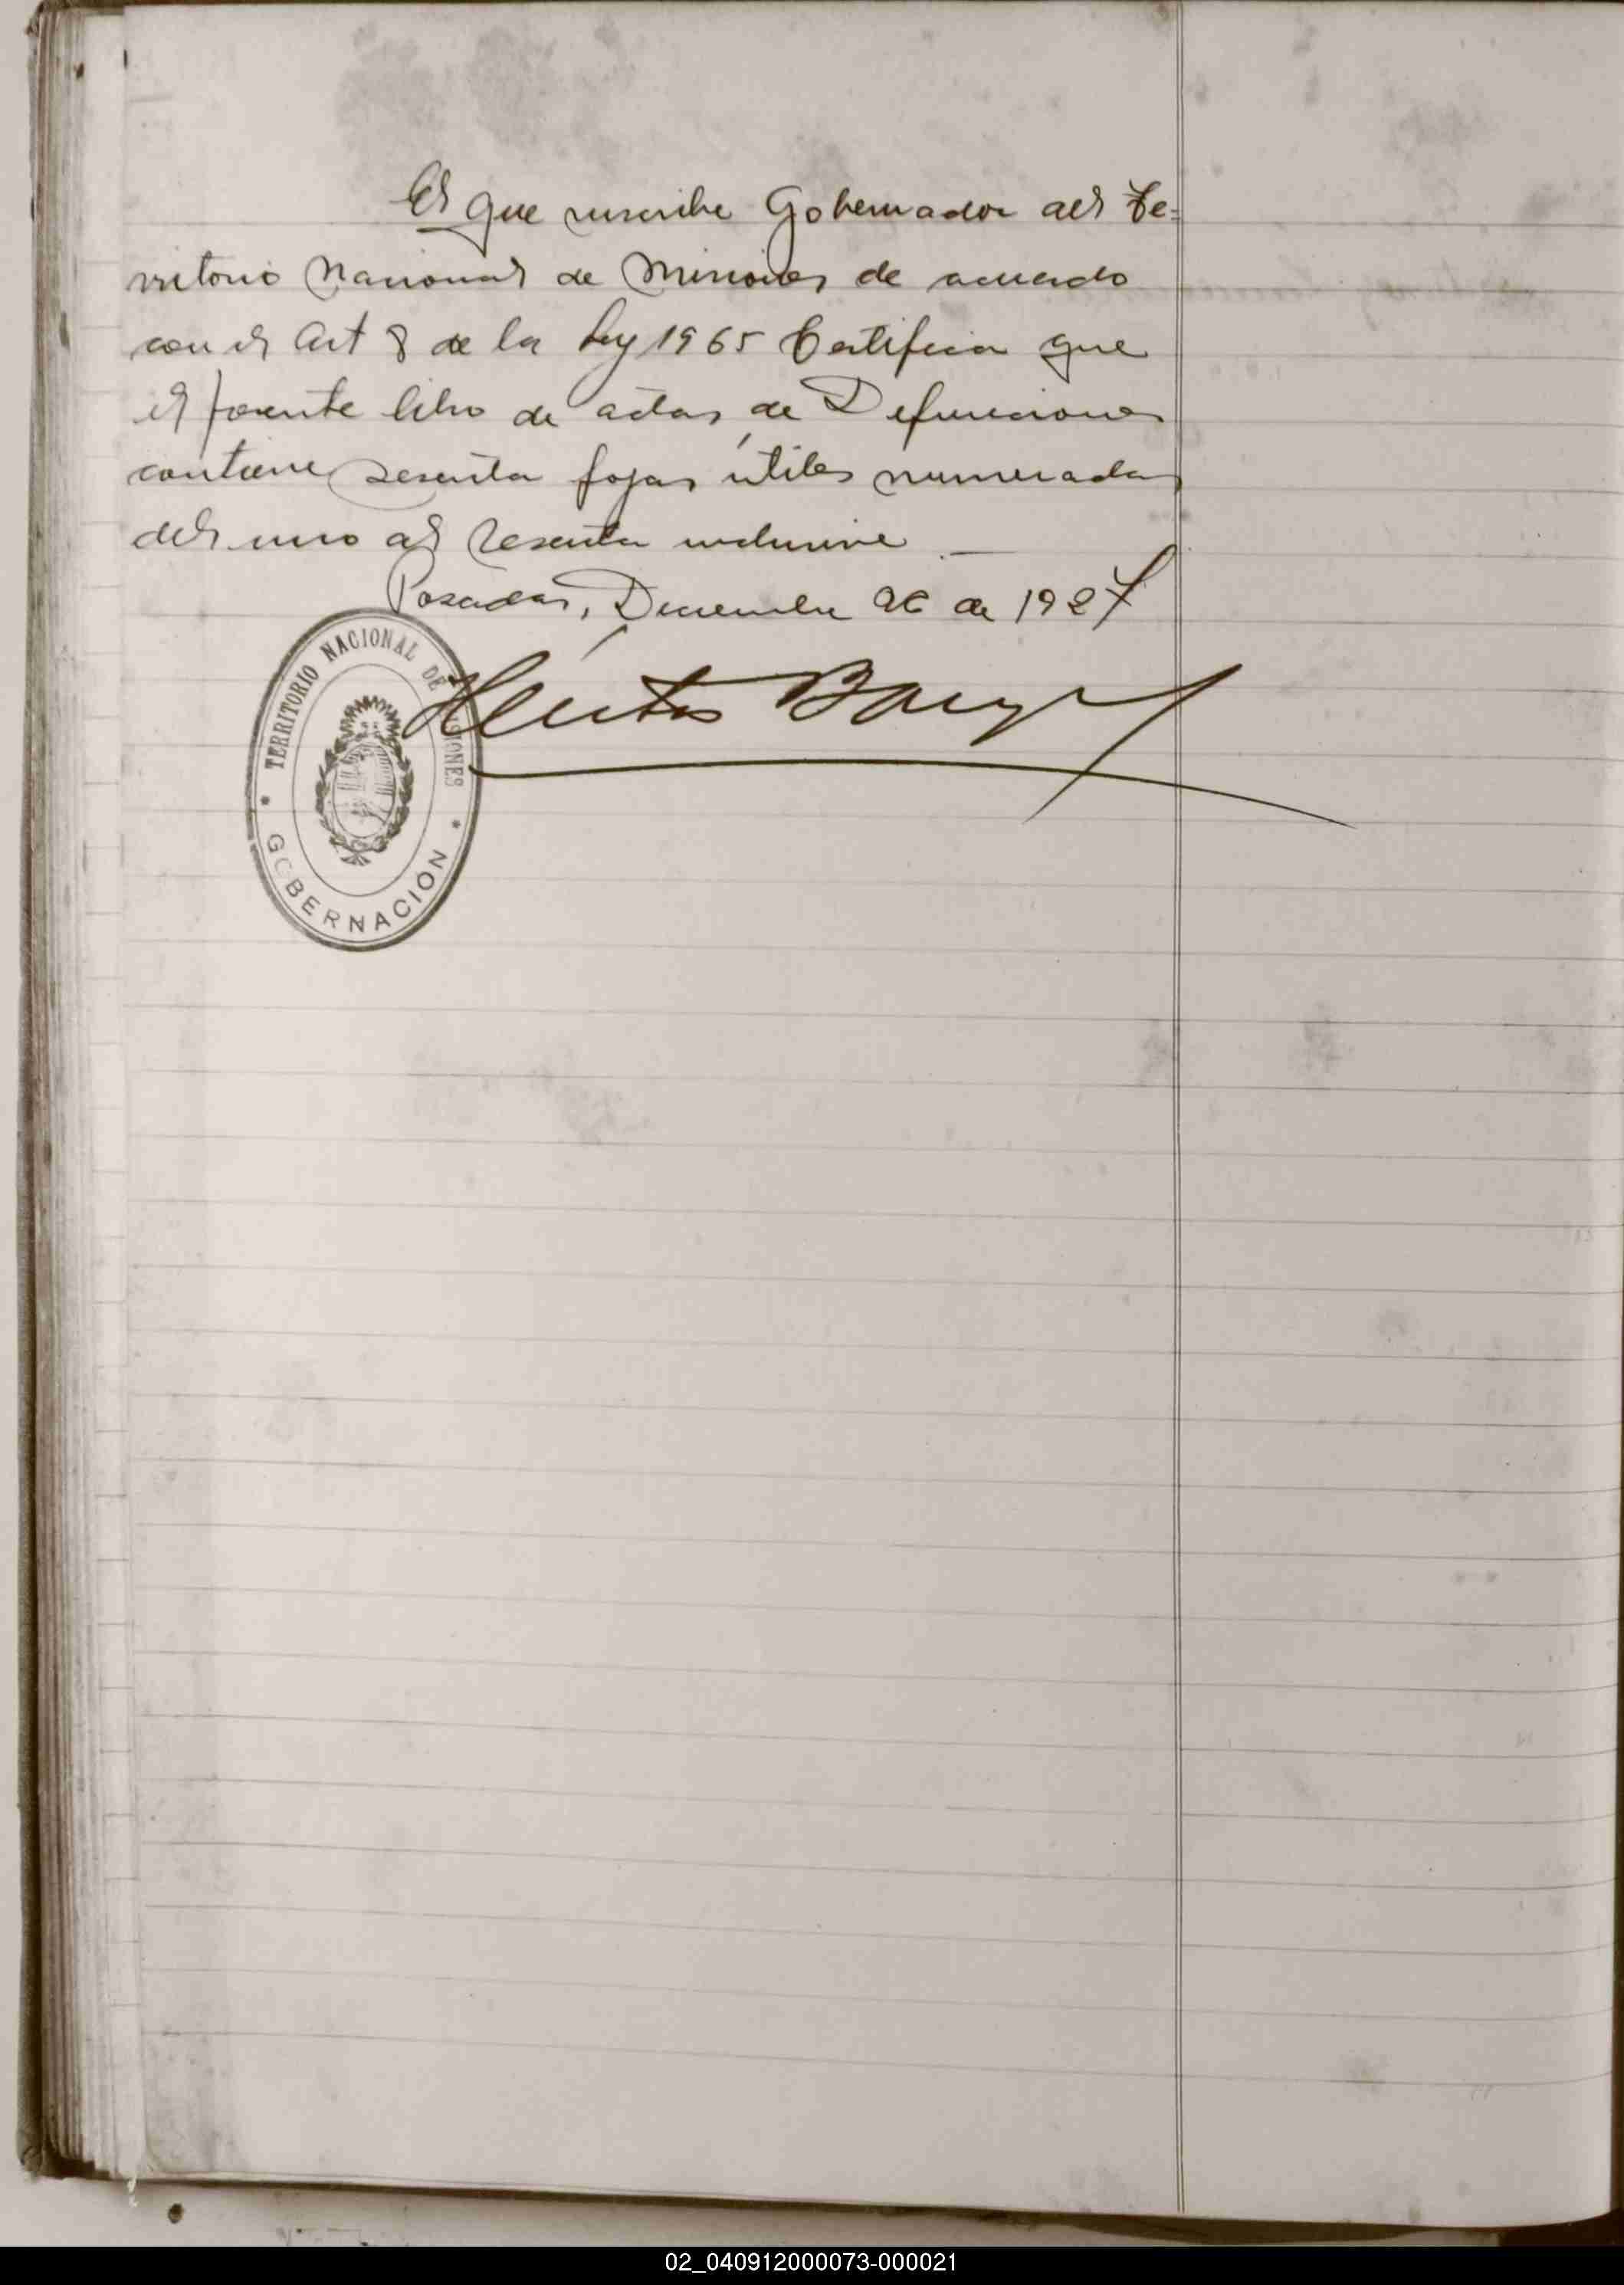 El que suscribe Gobernador del Te=
rritorio Nacional de Misiones de acuerdo
con el Art 8 de la Ley 1565 Certifica que
el presente libro de actas de Defunciones
contiene sesenta fojas útiles numeradas
del uno al sesenta inclusive
Posadas, Diciembre 26 de 1927
Héctor Barreyro
TERRITORIO NACIONAL DE MISIONES
GOBERNACIÓN
02_040912000073-000021